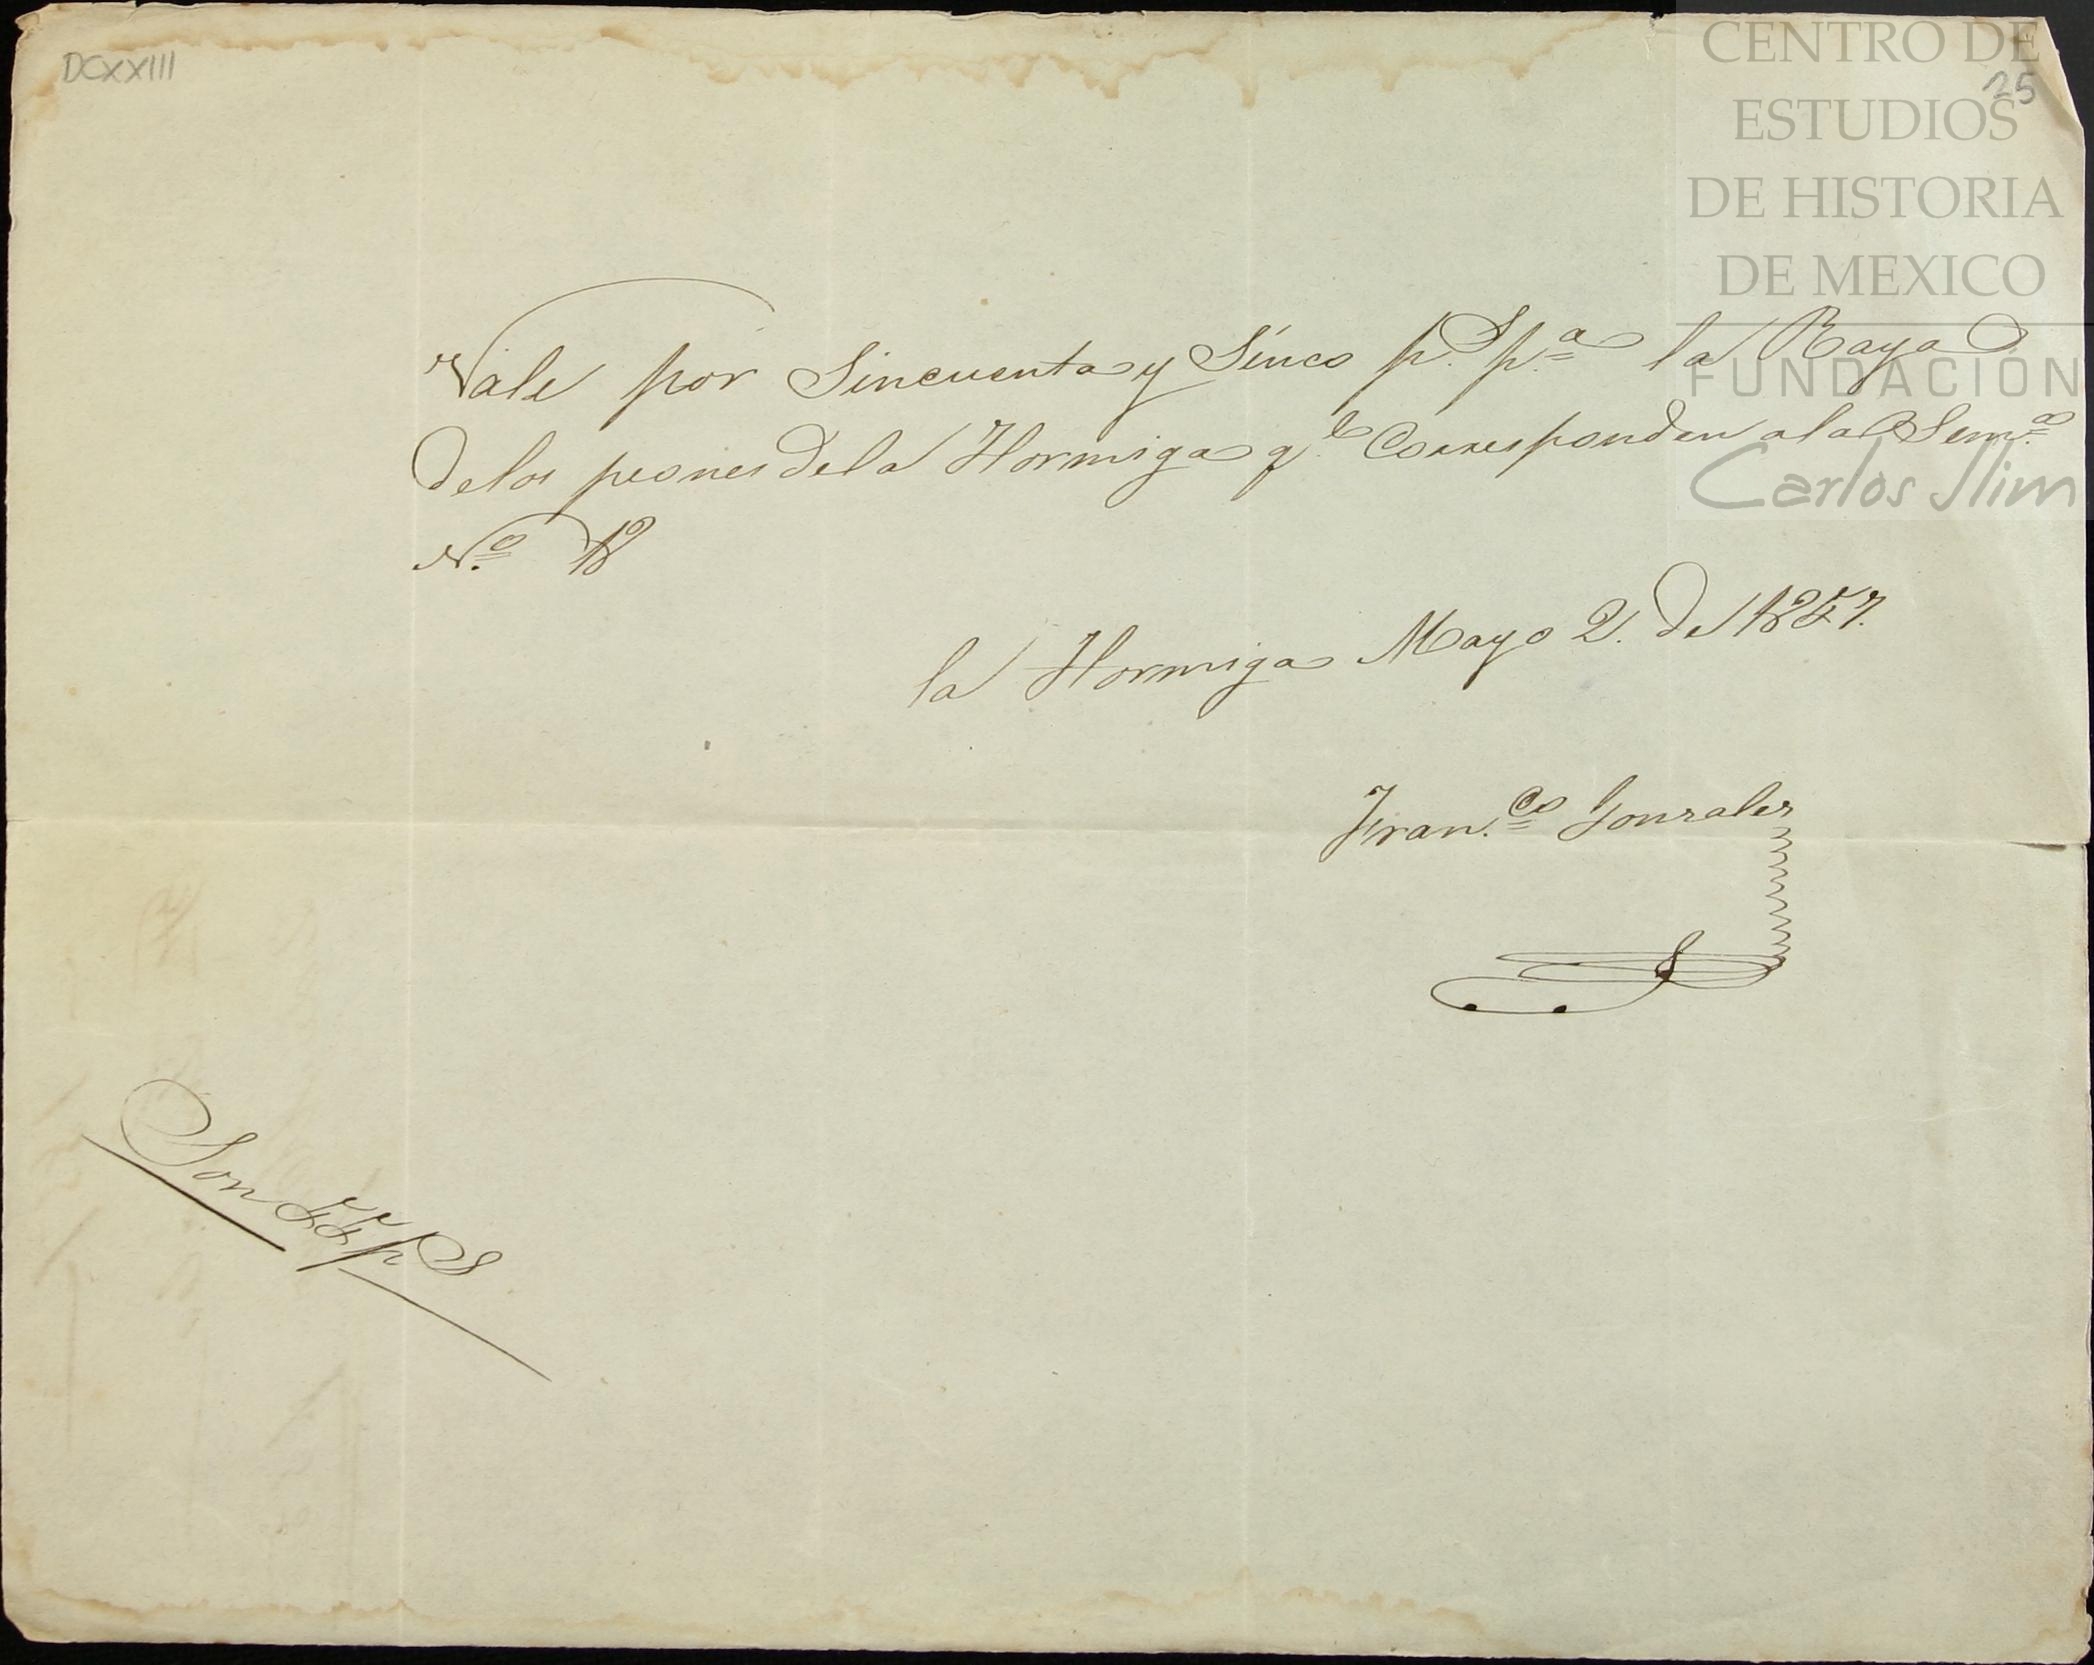 DCXXIII
25
CENTRO DE
ESTUDIOS
DE HISTORIA
DE MEXICO
FUNDACIÓN
Carlos Slim
Vale por Sincuenta y Sinco p.s p.a la Raya
de los peones de la Hormiga q.e Corresponden a la Sem.a
N.o 18
la Hormiga Mayo 2. de 1857.
Fran.co Gonzales
Son 55 ps